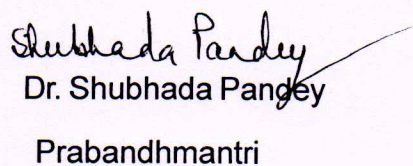 Shubhada Pandey
Dr. Shubhada Pandey
Prabandhmantri